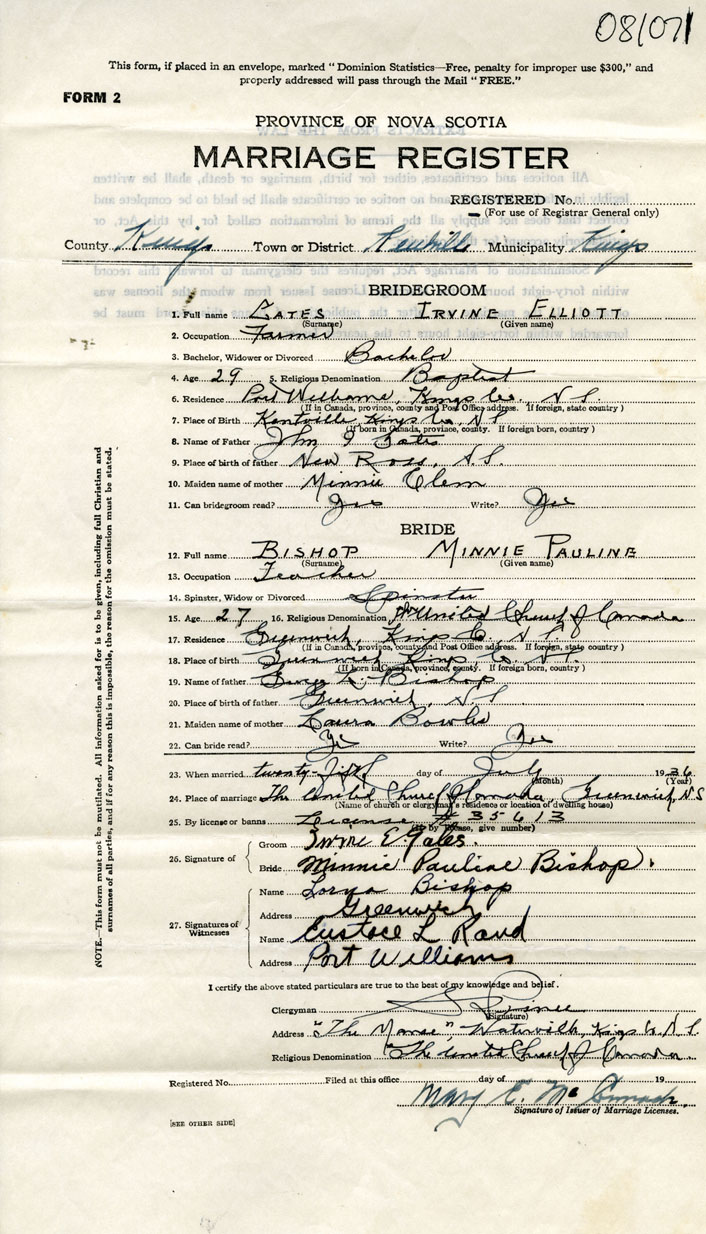 08/071
This form, if placed in an envelope, marked "Dominion Statistics—Free, penalty for improper use $300," and
properly addressed will pass through the Mail "FREE."
FORM 2
PROVINCE OF NOVA SCOTIA
MARRIAGE REGISTER
REGISTERED No.
(For use of Registrar General only)
County Kings Town or District Kentville Municipality Kings
BRIDEGROOM
1. Full name GATES IRVINE ELLIOTT
(Surname) (Given name)
2. Occupation Farmer
3. Bachelor, Widower or Divorced Bachelor
4. Age 29 5. Religious Denomination Baptist
6. Residence Port Williams, Kings Co. N.S.
(If in Canada, province, county and Post Office address. If foreign, state country)
7. Place of Birth Kentville Kings Co, N.S
(If born in Canada, province, county. If foreign born, country)
8. Name of Father John Gates
9. Place of birth of father New Ross, N.S.
10. Maiden name of mother Minnie
11. Can bridegroom read? Yes Write? Yes
BRIDE
12. Full name BISHOP MINNIE PAULINE
(Surname) (Given name)
13. Occupation Teacher
14. Spinster, Widow or Divorced Spinster
15. Age 27 16. Religious Denomination United Church of Canada
17. Residence Greenwich, Kings Co, N.S.
(If in Canada, province, county and Post Office address. If foreign, state country)
18. Place of birth Greenwich Kings Co. N.S.
(If born in Canada, province, county. If foreign born, country)
19. Name of father Bishop
20. Place of birth of father Greenwich, N.S
21. Maiden name of mother Laura Bowles
22. Can bride read? Yes Write? Yes
23. When married twenty-fifth day of July 1936
(Month) (Year)
24. Place of marriage The United Church of Canada, Greenwich, N.S
(Name of church or clergyman's residence or location of dwelling house)
25. By license or banns License # 35613
(If by license, give number)
26. Signature of
Groom Irvine E. Gates.
Bride Minnie Pauline Bishop.
27. Signatures of Witnesses
Name Lorna Bishop
Address Greenwich
Name Eustace L Rand
Address Port Williams
I certify the above stated particulars are true to the best of my knowledge and belief.
Clergyman Prince
(Signature)
Address "The Manse", Waterville, Kings Co N.S.
Religious Denomination "The United Church of Canada
Registered No. Filed at this office day of 19
Mary E.
Signature of Issuer of Marriage Licenses.
[SEE OTHER SIDE]
NOTE.—This form must not be mutilated. All information asked for is to be given, including full Christian and
surnames of all parties, and if for any reason this is impossible, the reason for the omission must be stated.